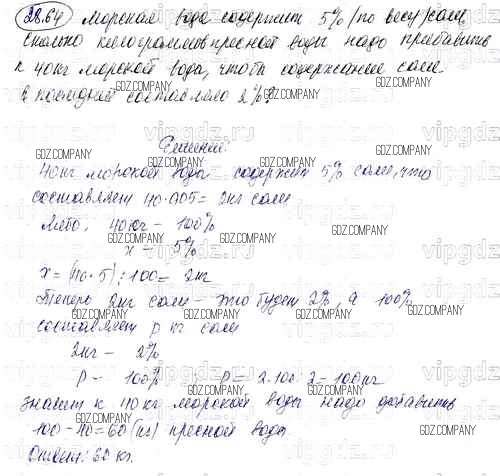 28.64 Морская вода содержит 5% (по весу) соли.
Сколько килограммов пресной воды надо прибавить
к 40кг морской воды, чтобы содержание соли
в последней составляло 2%?
Решение:
40кг морской воды содержит 5% соли, что
составляет 40·0,05= 2кг соли
Либо, 40кг – 100%
x – 5%
x = (40·5):100= 2кг
Теперь 2кг соли – это будет 2%, а 100%
составляет p кг соли
2кг – 2%
p – 100% p = 2·100:2 = 100кг
значит к 40кг морской воды надо добавить
100-40=60(кг) пресной воды
Ответ: 60 кг.
GDZ.COMPANY
vipgdz.ru